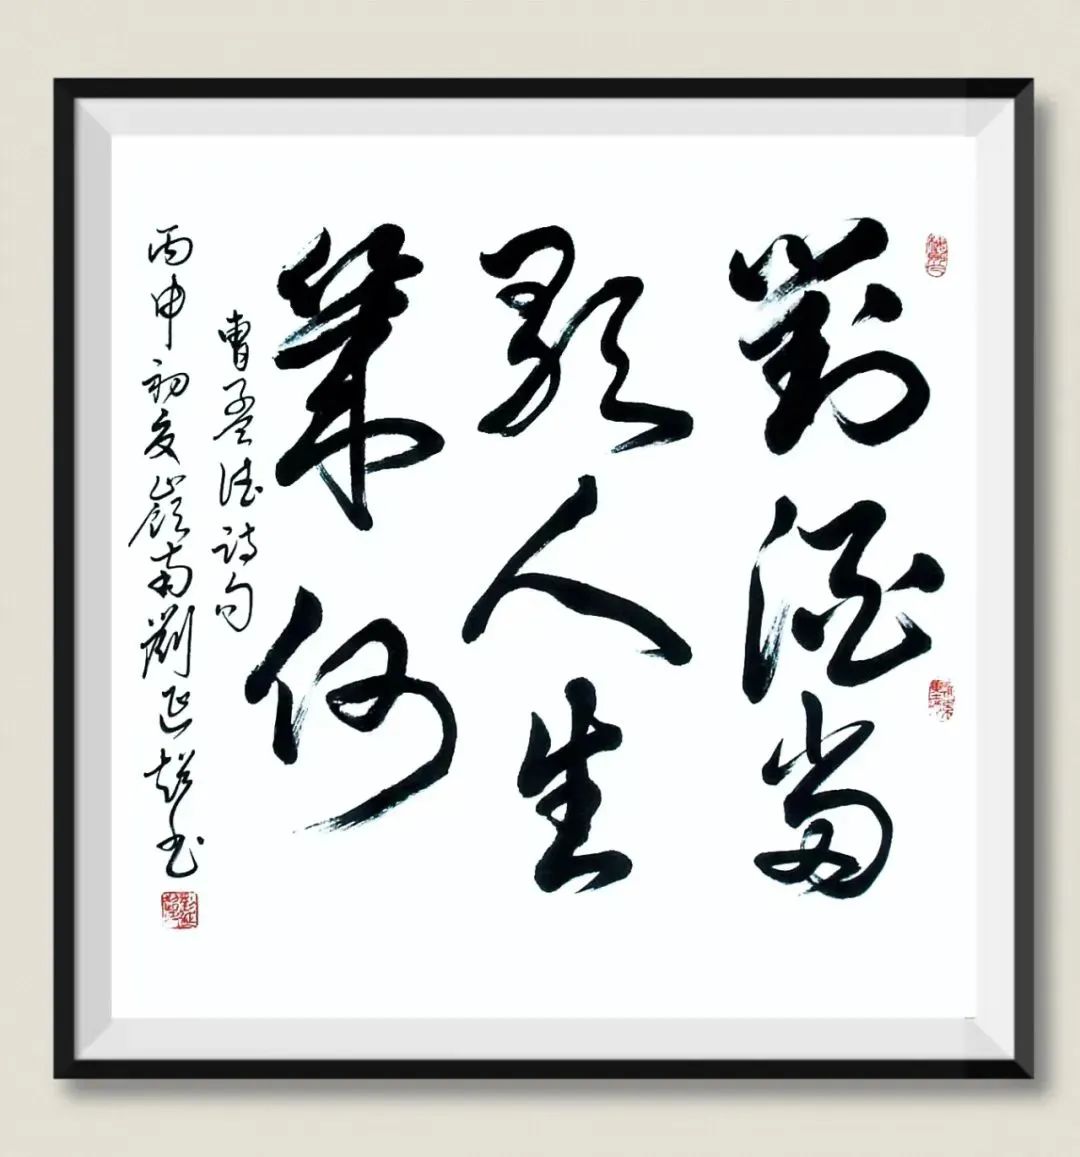 對酒當
歌人生
幾何
曹孟德詩句
丙申初夏嶺南劉延超书